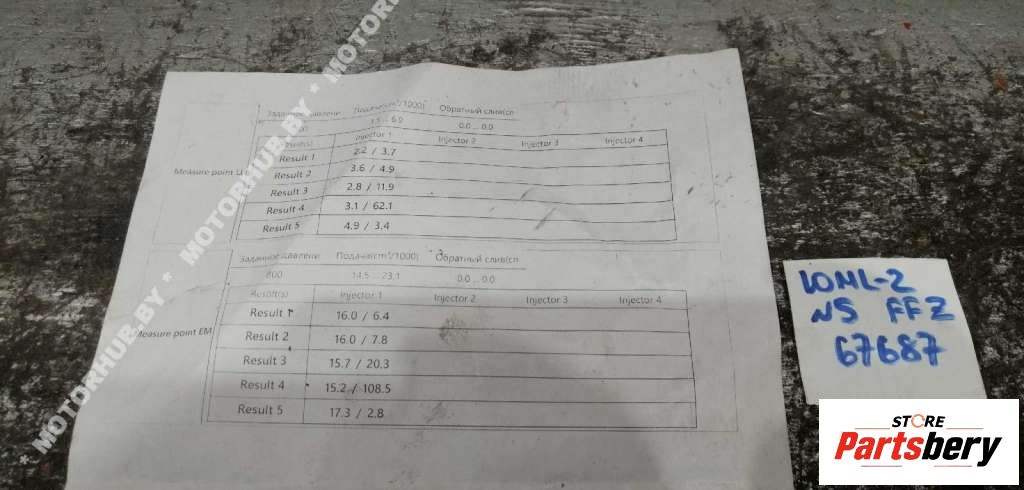 Заданное давлени Подача(cm³/1000) Обратный слив(сп
1.5 .. 6.9 0.0 ... 0.0
Injector 1 Injector 2 Injector 3 Injector 4
Measure point
Result 1 2.2 / 3.7
Result 2 3.6 / 4.9
Result 3 2.8 / 11.9
Result 4 3.1 / 62.1
Result 5 4.9 / 3.4
Заданное давлени Подача(cm³/1000) Обратный слив(сп
800 14.5 ... 23.1 0.0 ... 0.0
Result(s) Injector 1 Injector 2 Injector 3 Injector 4
Measure point EM
Result 1 16.0 / 6.4
Result 2 16.0 / 7.8
Result 3 15.7 / 20.3
Result 4 15.2 / 108.5
Result 5 17.3 / 2.8
NS FFZ
67687
STORE
Partsbery
* MOTORHUB.BY * MOTORHUB.BY * MOTORHUB.BY *